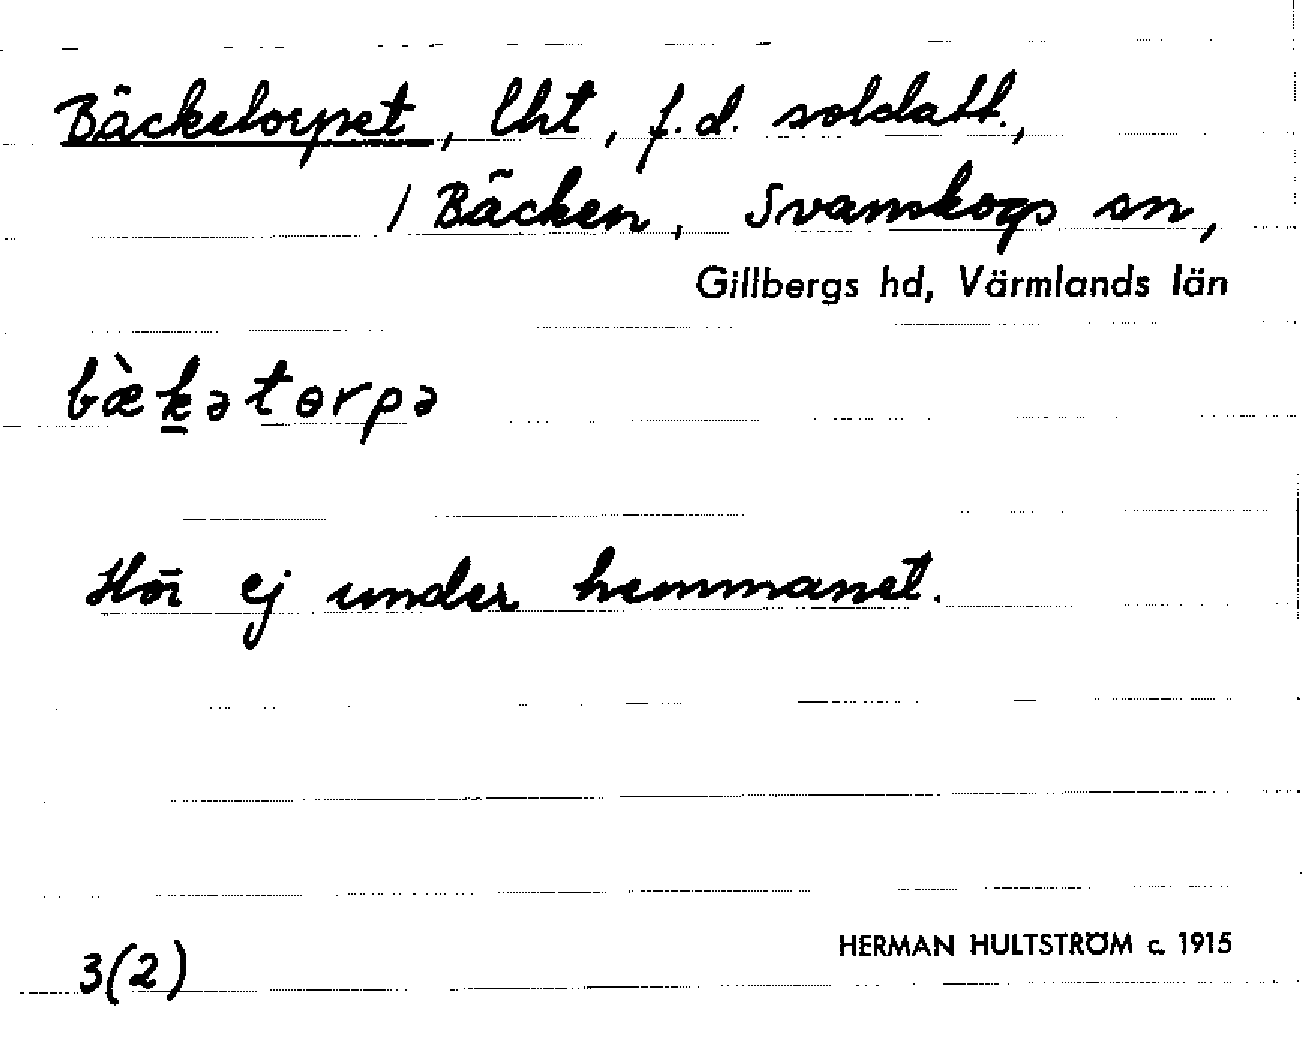 Bäcketorpet, lht, f.d. soldatt.,
/ Bäcken, Svanskogs sn,
Gillbergs hd, Värmlands län
bæ̀k̠ətɵrpə
Hör ej under hemmanet.
HERMAN HULTSTRÖM c. 1915
3(2)